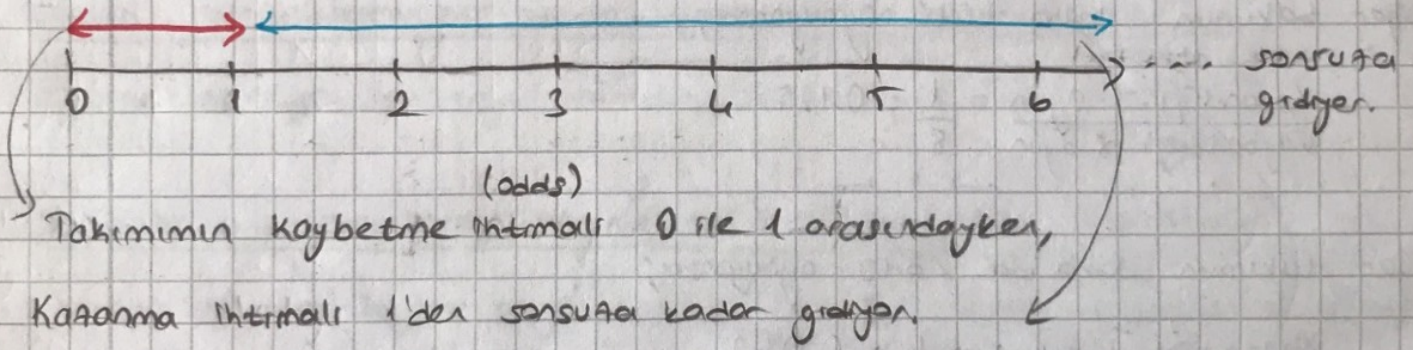 0 1 2 3 4 5 6 .... sonsuza
gidiyor.
(odds)
Takımımın kaybetme ihtimali 0 ile 1 arasındayken,
Kazanma ihtimali 1'den sonsuza kadar gidiyor.